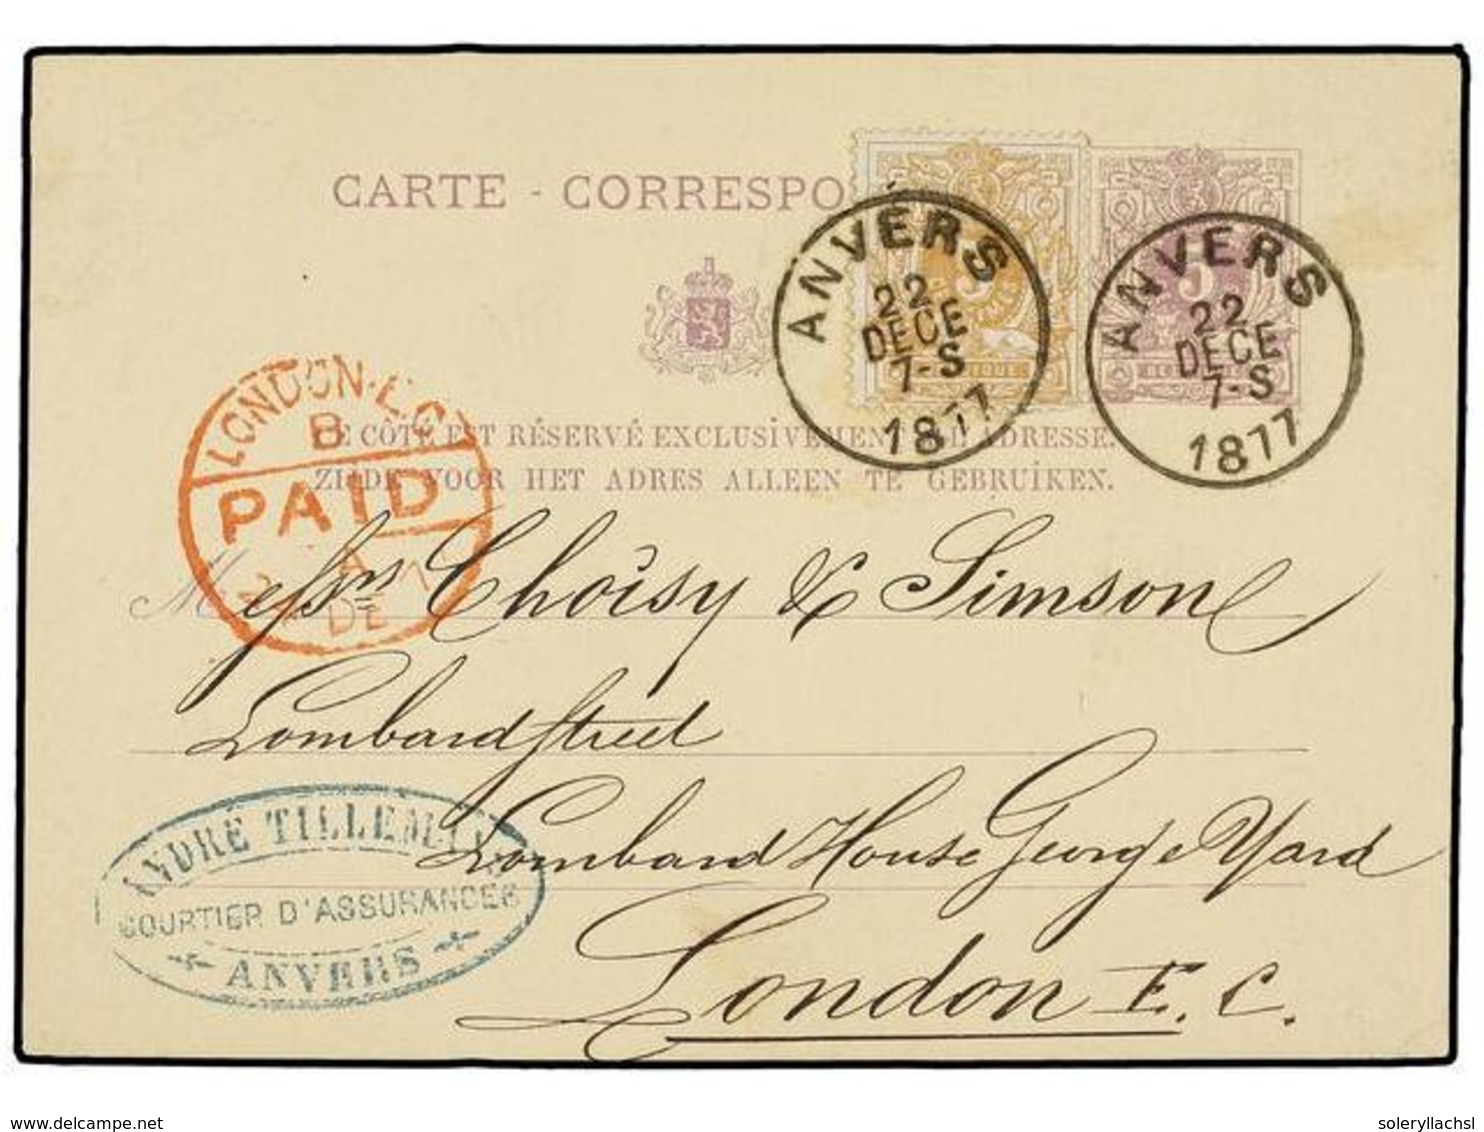 CARTE - CORRESPO
ANVERS
22
DECE
7-S
1877
ANVERS
22
DECE
7-S
1877
LONDON·E.C
B
PAID
A
DE
CE CÔTÉ EST RÉSERVÉ EXCLUSIVEMENT ADRESSE.
ZIJDE VOOR HET ADRES ALLEEN TE GEBRUIKEN.
Messrs Choisy & Simson
Lombard Street
Lombard House George Yard
London E.C.
ANDRÉ
COURTIER D'ASSURANCES
ANVERS
soleryllachsl